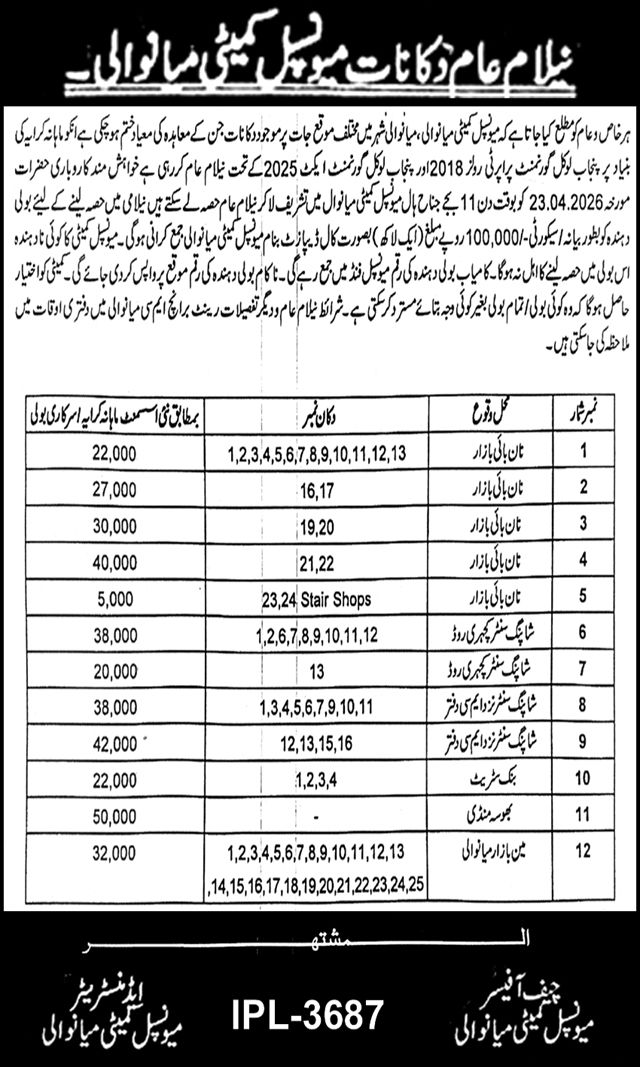 نیلام عام دکانات میونسپل کمیٹی میانوالی۔
ہر خاص و عام کو مطلع کیا جاتا ہے کہ میونسپل کمیٹی میانوالی، میانوالی شہر میں مختلف موقع جات پر موجود دکانات جن کے معاہدہ کی معیاد ختم ہو چکی ہے انکو ماہانہ کرایہ کی
بنیاد پر پنجاب لوکل گورنمنٹ پراپرٹی رولز 2018 اور پنجاب لوکل گورنمنٹ ایکٹ 2025 کے تحت نیلام عام کر رہی ہے خواہش مند کاروباری حضرات
مورخہ 23.04.2026 کو بوقت دن 11 بجے جناح ہال میونسپل کمیٹی میانوال میں تشریف لا کر نیلام عام حصہ لے سکتے ہیں نیلامی میں حصہ لینے کے لیئے بولی
دہندہ کو بطور بیانہ/سیکورٹی -/100,000 روپے مبلغ (ایک لاکھ) بصورت کال ڈیپازٹ بنام میونسپل کمیٹی میانوالی جمع کرانی ہوگی۔ میونسپل کمیٹی کا کوئی نادہندہ
اس بولی میں حصہ لینے کا اہل نہ ہوگا۔ کامیاب بولی دہندہ کی رقم میونسپل فنڈ میں جمع رہے گی۔ ناکام بولی دہندہ کی رقم موقع پر واپس کر دی جائے گی۔ کمیٹی کو اختیار
حاصل ہوگا کہ وہ کوئی بولی/تمام بولی بغیر کوئی وجہ بتائے مسترد کر سکتی ہے۔ شرائط نیلام عام و دیگر تفصیلات رینٹ برانچ ایم سی میانوالی میں دفتری اوقات میں
ملاحظہ کی جا سکتی ہیں۔
نمبر شمار محل وقوع دکان نمبر بمطابق نئی اسسمنٹ ماہانہ کرایہ /سرکاری بولی
1 نان بائی بازار 1,2,3,4,5,6,7,8,9,10,11,12,13 22,000
2 نان بائی بازار 16,17 27,000
3 نان بائی بازار 19,20 30,000
4 نان بائی بازار 21,22 40,000
5 نان بائی بازار 23,24 Stair Shops 5,000
6 شاپنگ سنٹر کچہری روڈ 1,2,6,7,8,9,10,11,12 38,000
7 شاپنگ سنٹر کچہری روڈ 13 20,000
8 شاپنگ سنٹر نزد ایم سی دفتر 1,3,4,5,6,7,9,10,11 38,000
9 شاپنگ سنٹر نزد ایم سی دفتر 12,13,15,16 42,000
10 بنک سٹریٹ 1,2,3,4 22,000
11 بھوسہ منڈی - 50,000
12 مین بازار میانوالی 1,2,3,4,5,6,7,8,9,10,11,12,13 32,000
,14,15,16,17,18,19,20,21,22,23,24,25
المشتہر
چیف آفیسر
میونسپل کمیٹی میانوالی
IPL-3687
ایڈمنسٹریٹر
میونسپل کمیٹی میانوالی